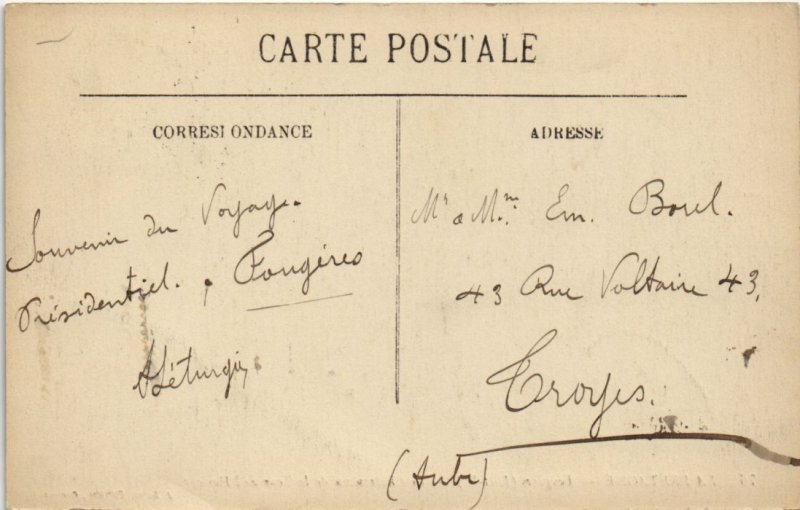 CARTE POSTALE
CORRESPONDANCE
Souvenir du Voyage
Présidentiel. Fougères
ADRESSE
Mr & Mme Em. Borel.
43 Rue Voltaire 43,
Troyes.
(Aube)